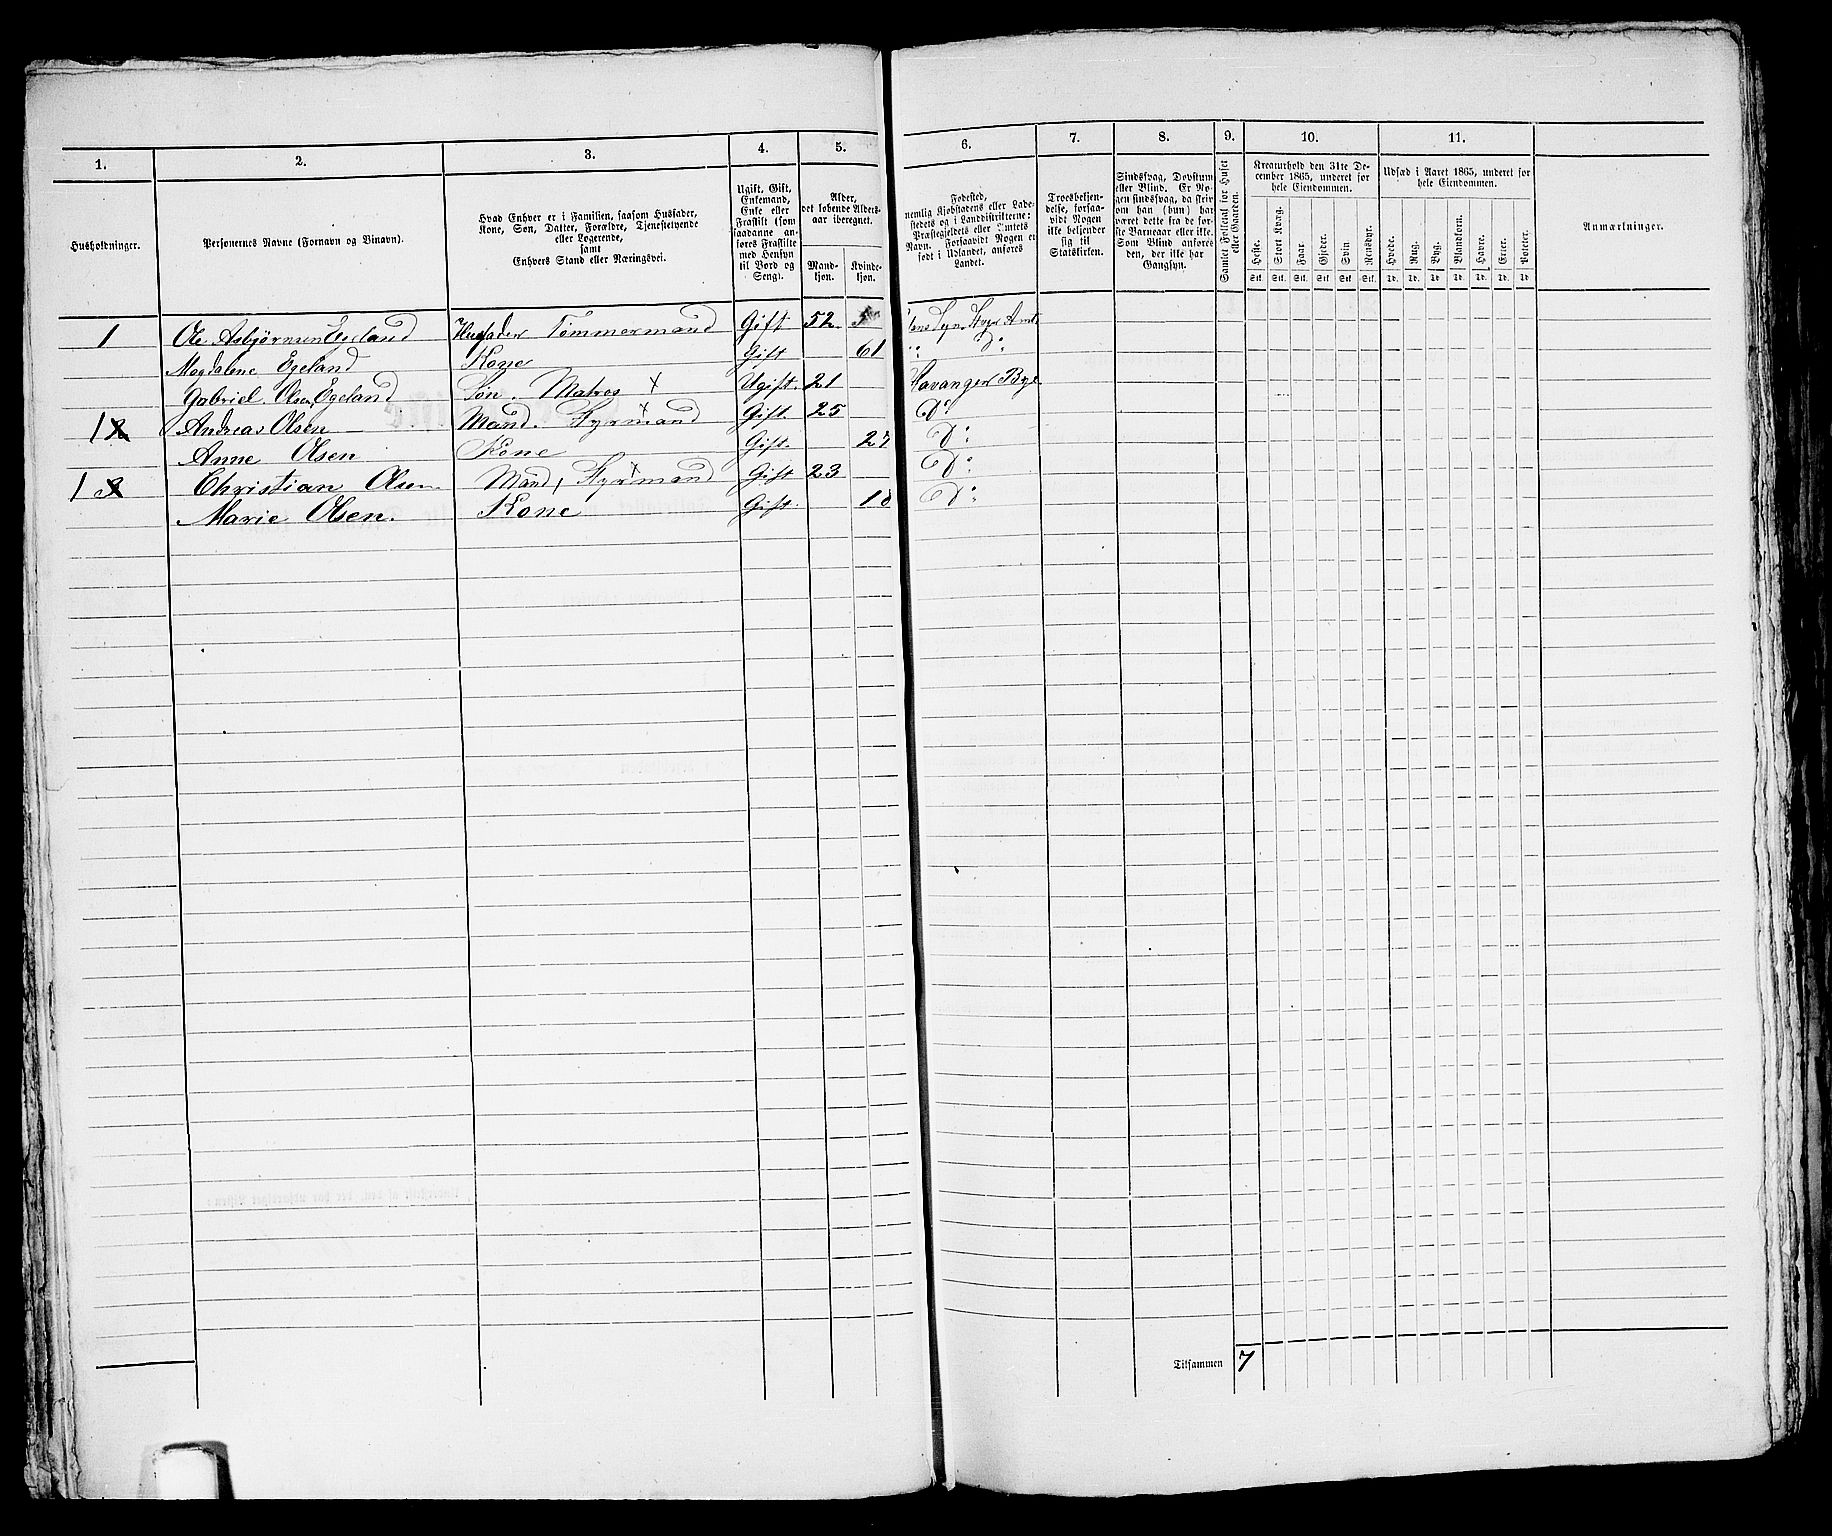 1. 2. 3. 4. 5. 6. 7. 8. 9. 10. 11.
Husholdninger.
Personernes Navne (Fornavn og Vinavn).
Hvad Enhver er i Familien, saasom Husfader,
Kone, Søn, Datter, Forældre, Tjenestetyende
eller Logerende,
samt
Enhvers Stand eller Næringsvei.
Ugift, Gift,
Enkemand,
Enke eller
Fraskilt (som
saadanne an-
føres Fraskilte
med Hensyn
til Bord og
Seng).
Alder,
det løbende Alders-
aar iberegnet.
Mand-
kjøn.
Kvinde-
kjøn.
Fødested,
nemlig Kjøbstadens eller Lade-
stedets og i Landdistrikterne:
Præstegjeldets eller Amtets
Navn. Forsaavidt Nogen er
født i Udlandet, anføres
Landet.
Troesbekjen-
delse, forsaa-
vidt Nogen
ikke bekjender
sig til
Statskirken.
Sindssvag, Døvstum
eller Blind. Er No-
gen sindssvag, da skriv
om han (hun) har
været dette fra de før-
ste Barneaar eller ikke.
Som Blind anføres
den, der ikke har
Gangsyn.
Samlet Folketal for Huset
eller Gaarden.
Kreaturhold den 31te De-
cember 1865, underet for
hele Eiendommen.
Heste. Stort Kvæg. Faar. Gjeder. Svin. Rensdyr.
Stk. Stk. Stk. Stk. Stk. Stk.
Udsæd i Aaret 1865, underet for
hele Eiendommen.
Hvede. Rug. Byg. Blandkorn. Havre. Erter. Poteter.
Td. Td. Td. Td. Td. Td. Td.
Anmærkninger.
1 Ole Asbjørnsen Egeland Husfader Tømmermand Gift 52
Magdalene Egeland Kone Gift 61 Do
Gabriel Olsen Egeland Søn. Matros x Ugift. 21 Stavanger Bye
1 Andreas Olsen Mand. Fyrmand x Gift. 25 Do
Anne Olsen Kone Gift. 27 Do
1 Christian Olsen Mand, Fyrmand x Gift 23 Do
Marie Olsen. Kone Gift. 18 Do
Tilsammen 7